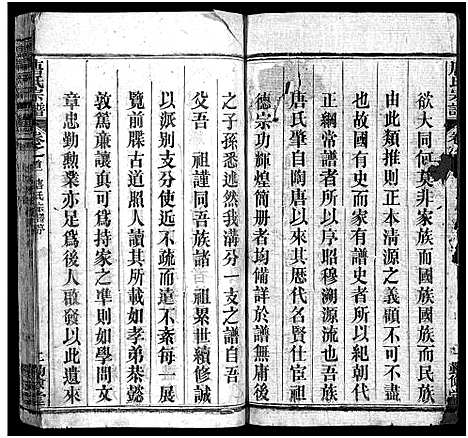 欲大同何莫非家族而國族而民族
然此類推則正本清源之義顧不可不盡
也國有史而家有譜史所以紀朝代
正綱常譜者所以序昭穆溯源流也吾族
唐氏肇自陶唐以來其歷代名賢仕宦祖
德宗功輝煌簡册者均備詳於譜無庸後
之子孫悉述然我溝分一支之譜自吾
父吾　祖謹同吾族諸　祖累世續修誠
以派别支分使近不疏而遠不紊每一展
覽前牒古道照人讀其所載如孝弟恭懿
敦篤廉讓真可為持家之準則如學問文
章忠勤勲業亦足為後人啟迪以此遺來
唐氏宗譜
卷之首